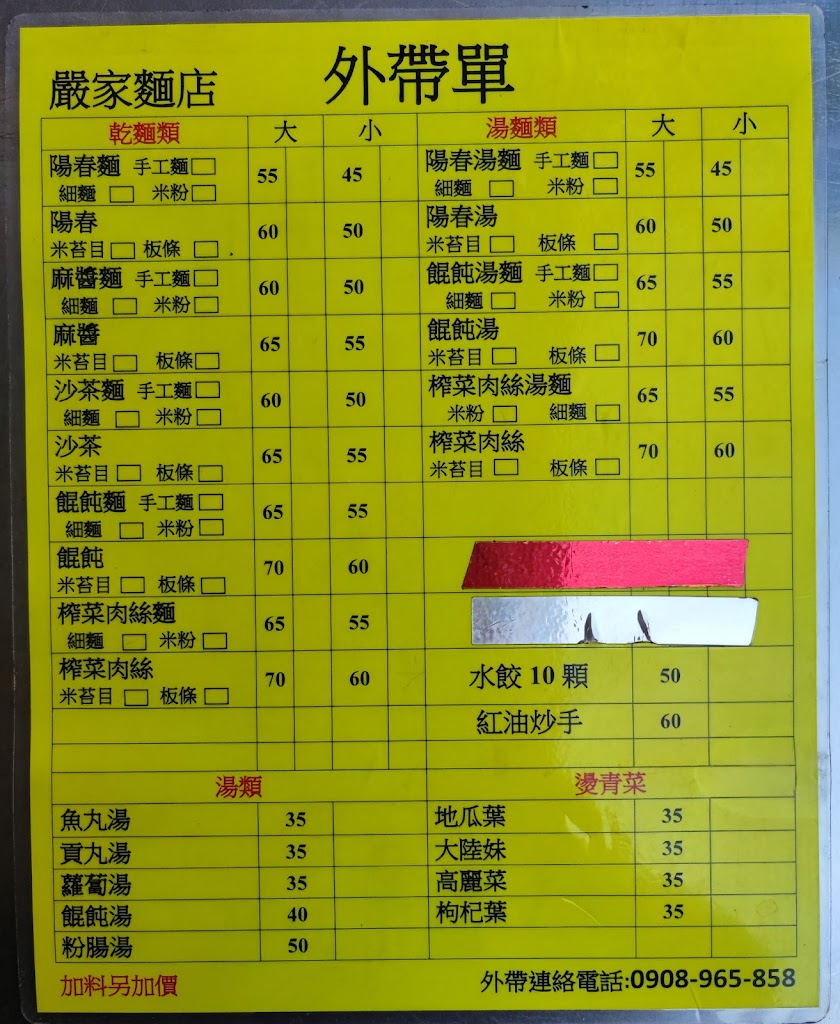 嚴家麵店 外帶單
乾麵類 大 小
陽春麵 手工麵□ 55 45
細麵 □ 米粉□
陽春 60 50
米苔目□ 板條 □
麻醬麵 手工麵□ 60 50
細麵 □ 米粉□
麻醬 65 55
米苔目□ 板條□
沙茶麵 手工麵□ 60 50
細麵 □ 米粉□
沙茶 65 55
米苔目□ 板條□
餛飩麵 手工麵□ 65 55
細麵 □ 米粉□
餛飩 70 60
米苔目□ 板條□
榨菜肉絲麵 65 55
細麵 □ 米粉□
榨菜肉絲 70 60
米苔目□ 板條□
湯麵類 大 小
陽春湯麵 手工麵□ 55 45
細麵 □ 米粉□
陽春湯 60 50
米苔目□ 板條 □
餛飩湯麵 手工麵□ 65 55
細麵 □ 米粉□
餛飩湯 70 60
米苔目□ 板條□
榨菜肉絲湯麵 65 55
米粉 □ 細麵 □
榨菜肉絲 70 60
米苔目□ 板條□
水餃 10 顆 50
紅油炒手 60
湯類
魚丸湯 35
貢丸湯 35
蘿蔔湯 35
餛飩湯 40
粉腸湯 50
燙青菜
地瓜葉 35
大陸妹 35
高麗菜 35
枸杞葉 35
加料另加價
外帶連絡電話:0908-965-858